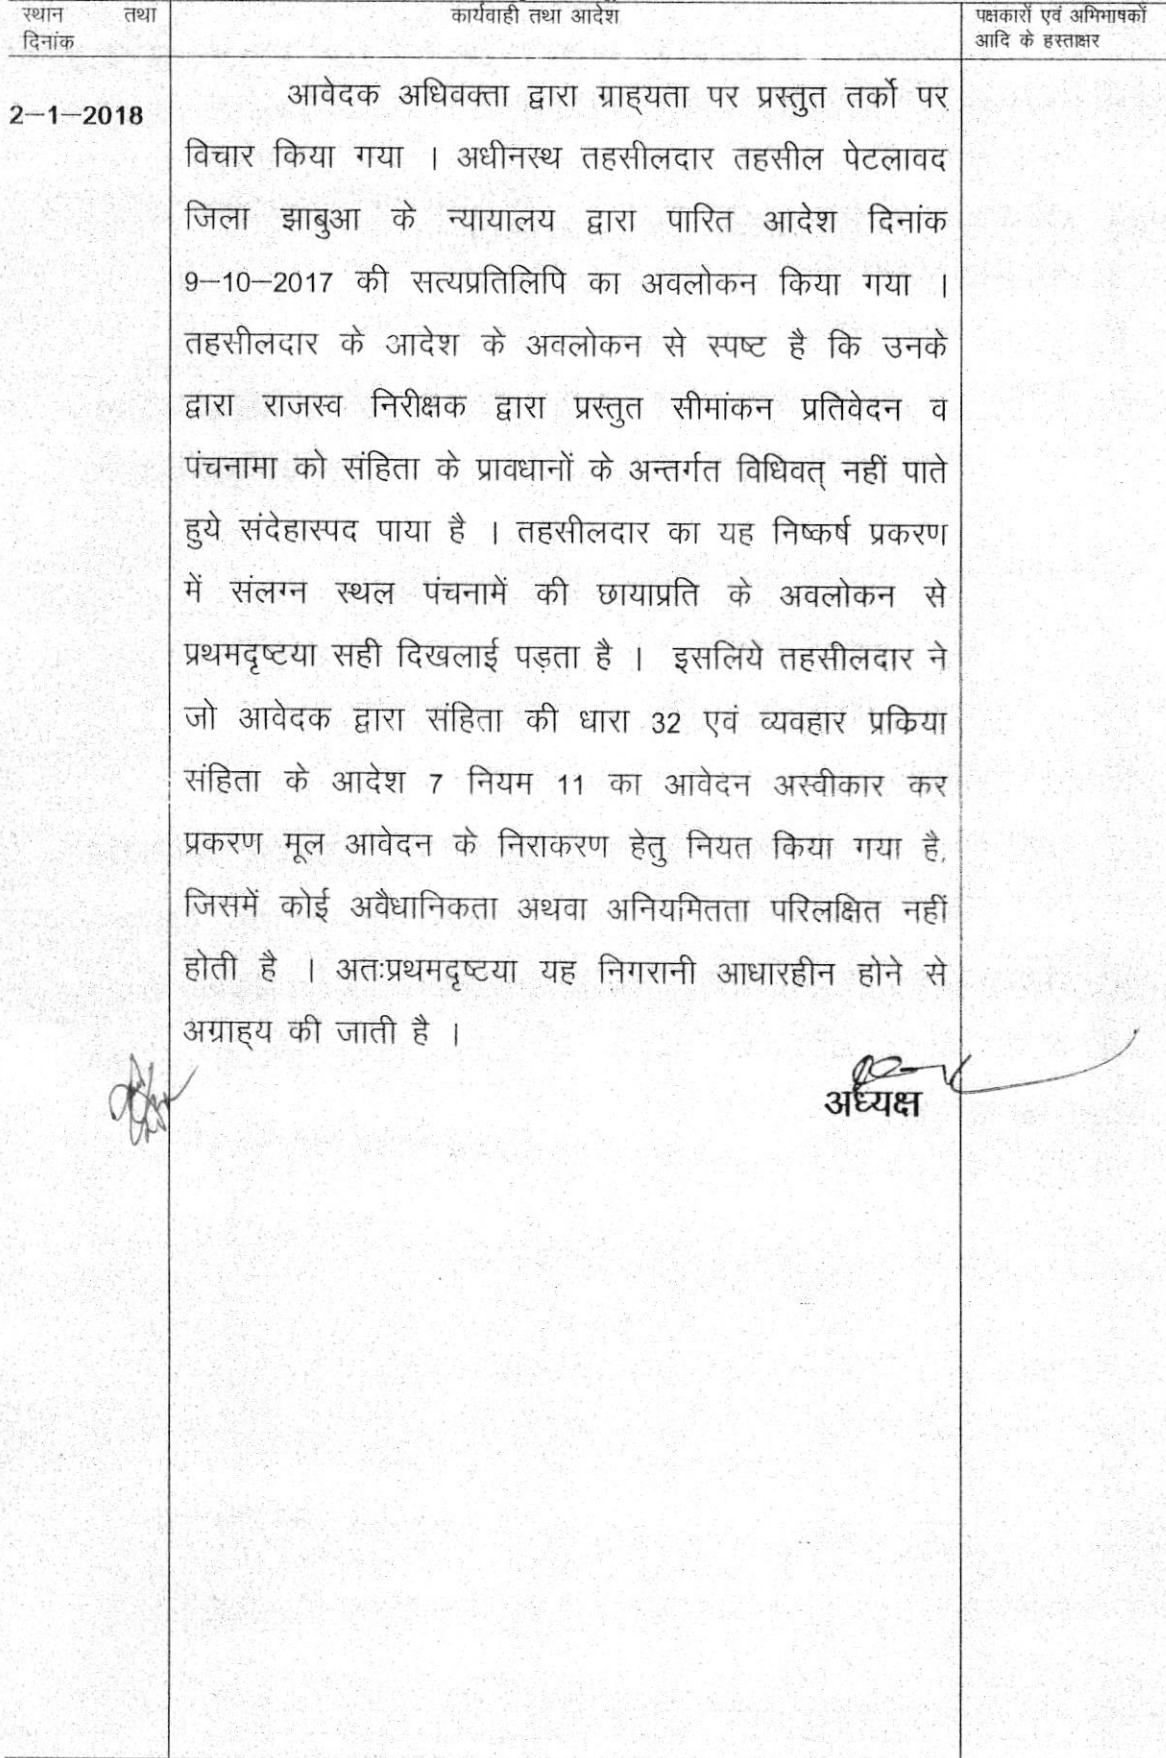 स्थान तथा
दिनांक
कार्यवाही तथा आदेश
पक्षकारों एवं अभिभाषकों
आदि के हस्ताक्षर
2-1-2018
आवेदक अधिवक्ता द्वारा ग्राह्यता पर प्रस्तुत तर्को पर
विचार किया गया । अधीनस्थ तहसीलदार तहसील पेटलावद
जिला झाबुआ के न्यायालय द्वारा पारित आदेश दिनांक
9-10-2017 की सत्यप्रतिलिपि का अवलोकन किया गया ।
तहसीलदार के आदेश के अवलोकन से स्पष्ट है कि उनके
द्वारा राजस्व निरीक्षक द्वारा प्रस्तुत सीमांकन प्रतिवेदन व
पंचनामा को संहिता के प्रावधानों के अन्तर्गत विधिवत् नहीं पाते
हुये संदेहास्पद पाया है । तहसीलदार का यह निष्कर्ष प्रकरण
में संलग्न स्थल पंचनामें की छायाप्रति के अवलोकन से
प्रथमदृष्टया सही दिखलाई पड़ता है । इसलिये तहसीलदार ने
जो आवेदक द्वारा संहिता की धारा 32 एवं व्यवहार प्रकिया
संहिता के आदेश 7 नियम 11 का आवेदन अस्वीकार कर
प्रकरण मूल आवेदन के निराकरण हेतु नियत किया गया है,
जिसमें कोई अवैधानिकता अथवा अनियमितता परिलक्षित नहीं
होती है । अतःप्रथमदृष्टया यह निगरानी आधारहीन होने से
अग्राह्य की जाती है ।
अध्यक्ष